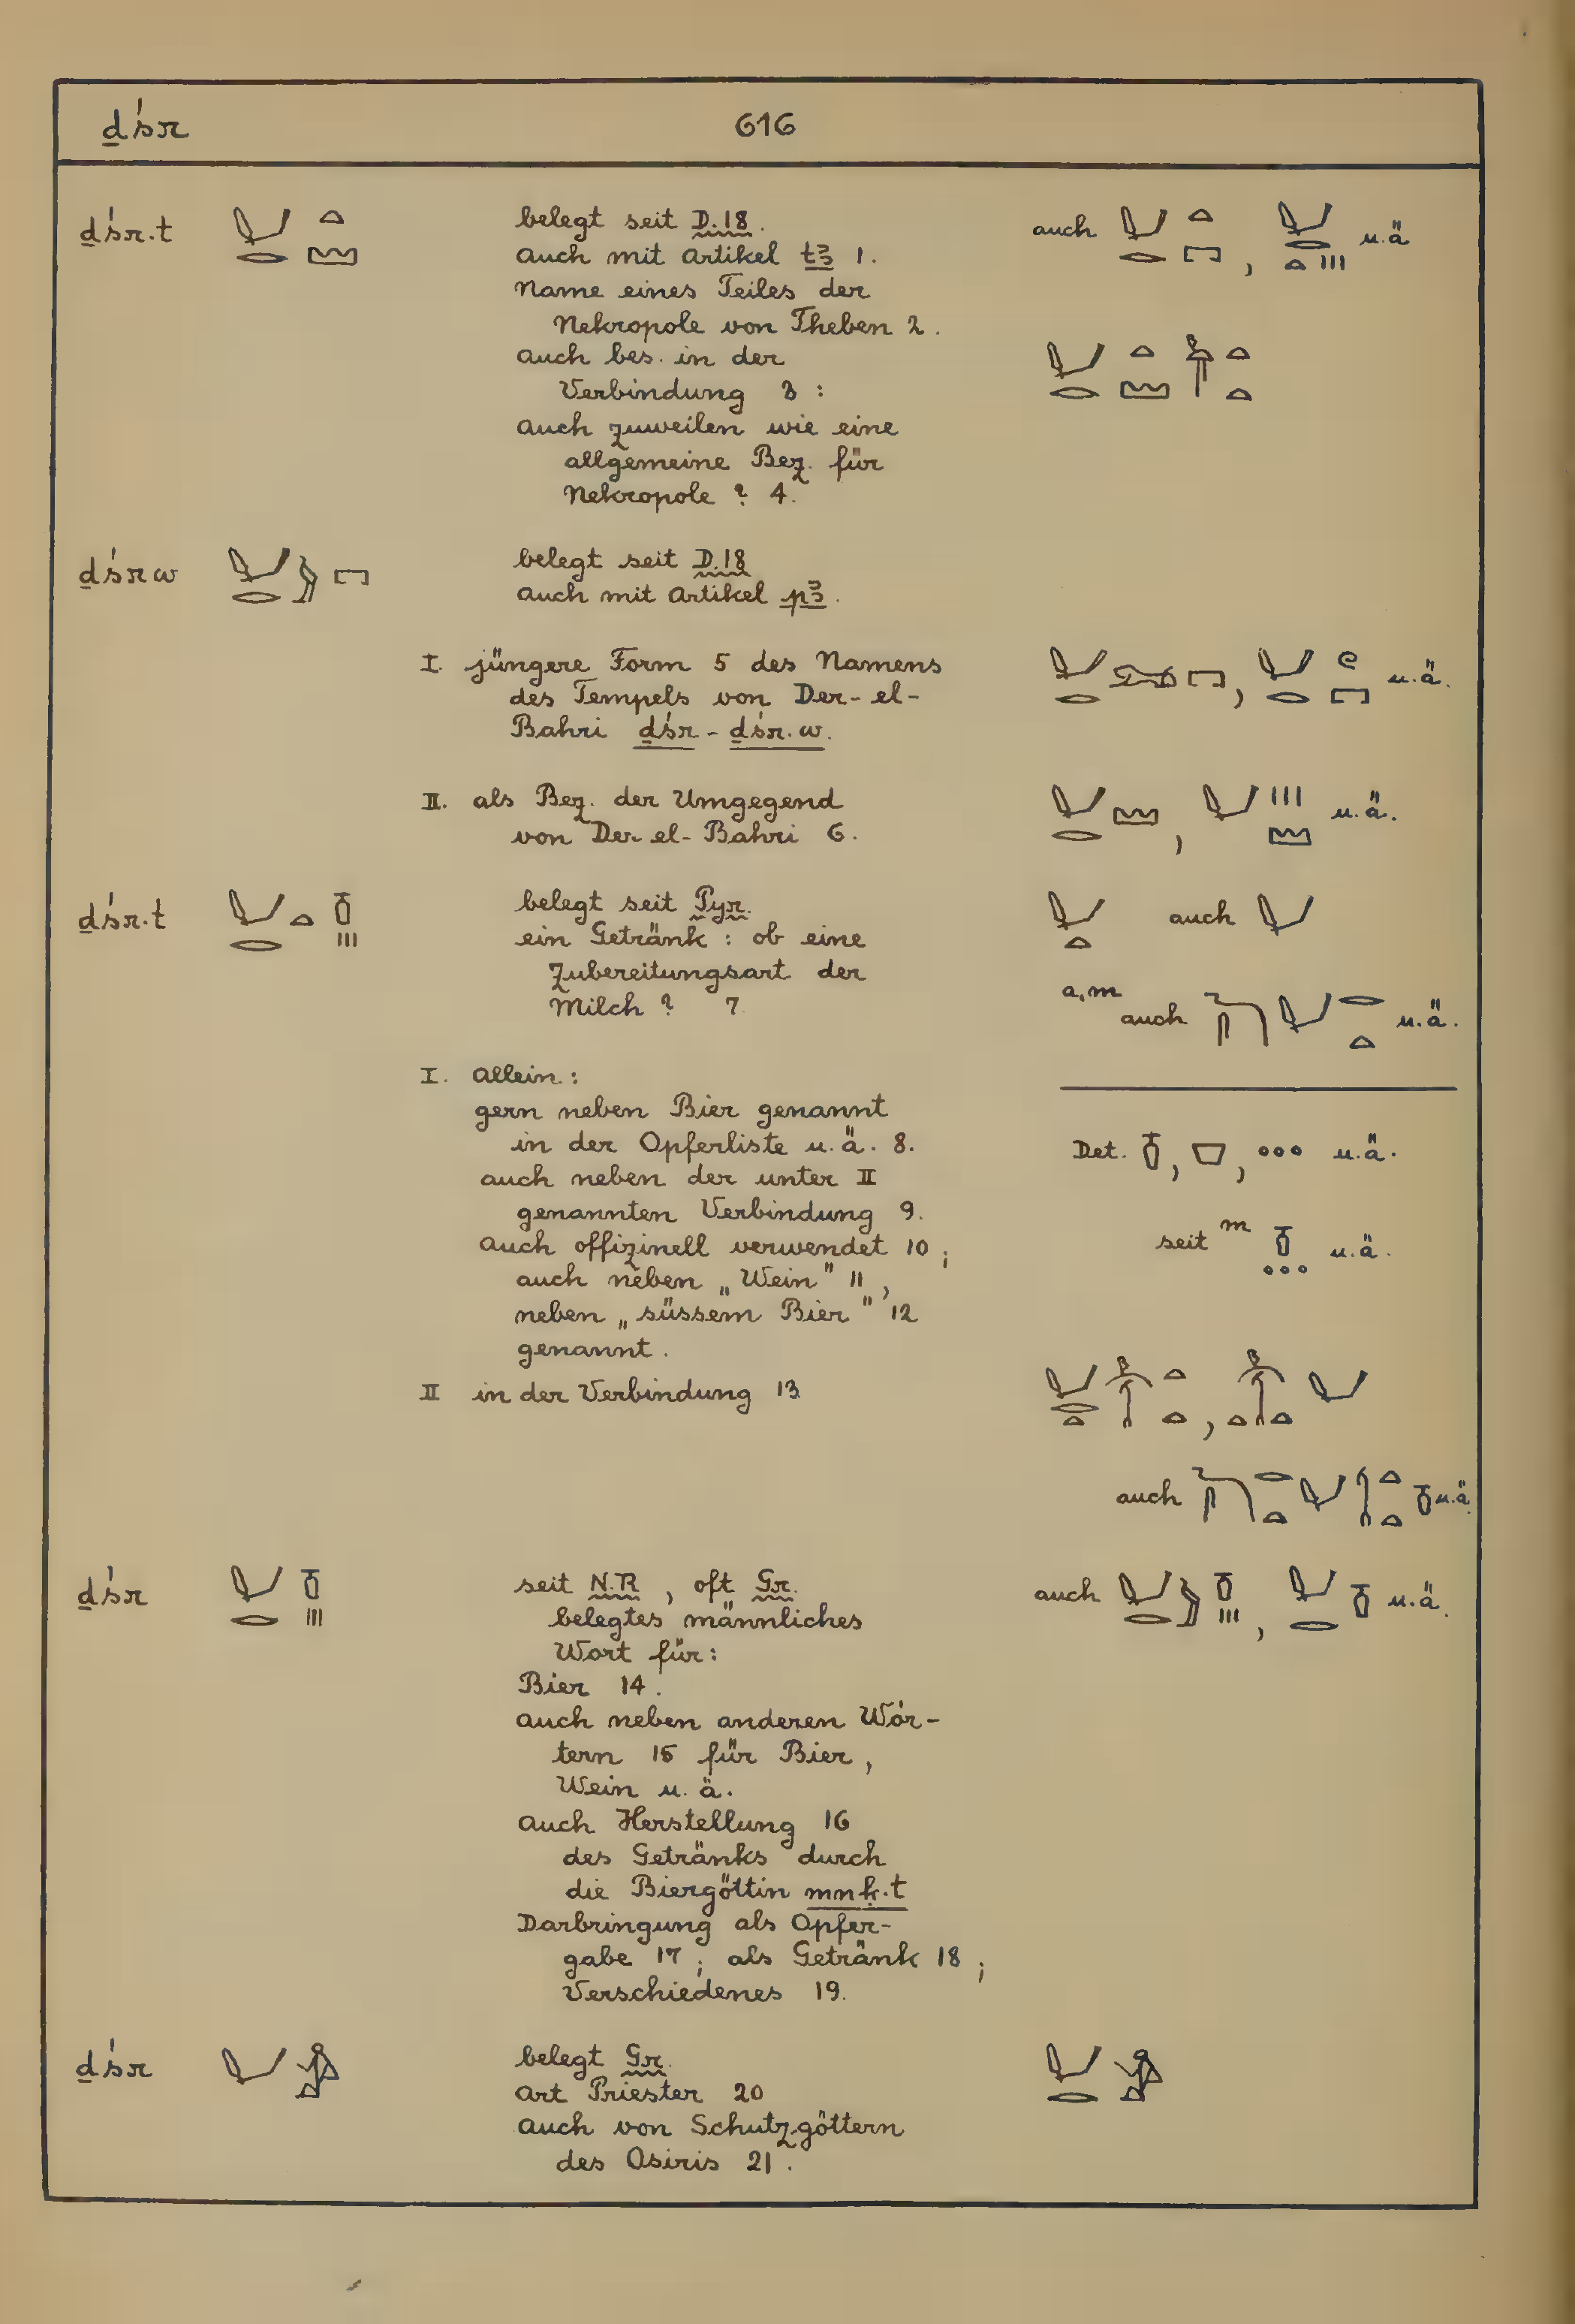 ḏśr 616
ḏśr.t belegt seit D.18. auch , u.ä
auch mit Artikel tꜣ 1.
Name eines Teiles der
Nekropole von Theben 2.
auch bes. in der
Verbindung 3 :
auch zuweilen wie eine
allgemeine Bez. für
Nekropole ? 4.
ḏśrw belegt seit D.18
auch mit Artikel pꜣ.
I. jüngere Form 5 des Namens , u.ä.
des Tempels von Der-el-
Bahri ḏśr - ḏśr.w.
II. als Bez. der Umgegend , u.ä.
von Der el-Bahri 6.
ḏśr.t belegt seit Pyr. auch
ein Getränk : ob eine
Zubereitungsart der
Milch ? 7. a,m auch u.ä.
I. allein :
gern neben Bier genannt
in der Opferliste u.ä. 8. Det. , , u.ä.
auch neben der unter II
genannten Verbindung 9.
auch offizinell verwendet 10 ; seit m u.ä.
auch neben „Wein" 11,
neben „süssem Bier" 12
genannt.
II in der Verbindung 13 ,
auch u.ä.
ḏśr seit N.R , oft Gr. auch , u.ä.
belegtes männliches
Wort für:
Bier 14.
auch neben anderen Wör-
tern 15 für Bier,
Wein u.ä.
auch Herstellung 16
des Getränks durch
die Biergöttin mnḳ.t
Darbringung als Opfer-
gabe 17 ; als Getränk 18 ;
Verschiedenes 19.
ḏśr belegt Gr.
Art Priester 20
auch von Schutzgöttern
des Osiris 21.